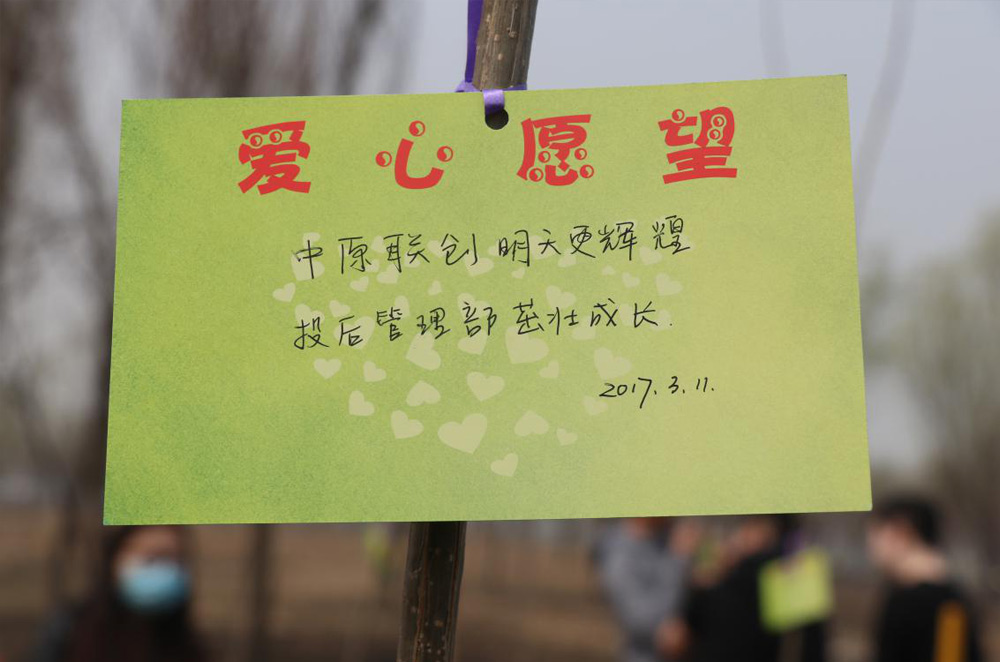 爱心愿望
中原联创明天更辉煌
投后管理部茁壮成长.
2017.3.11.